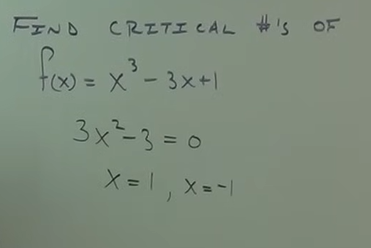 FIND CRITICAL #'S OF
f(x) = x³ - 3x+1
3x²-3=0
x=1, x=-1